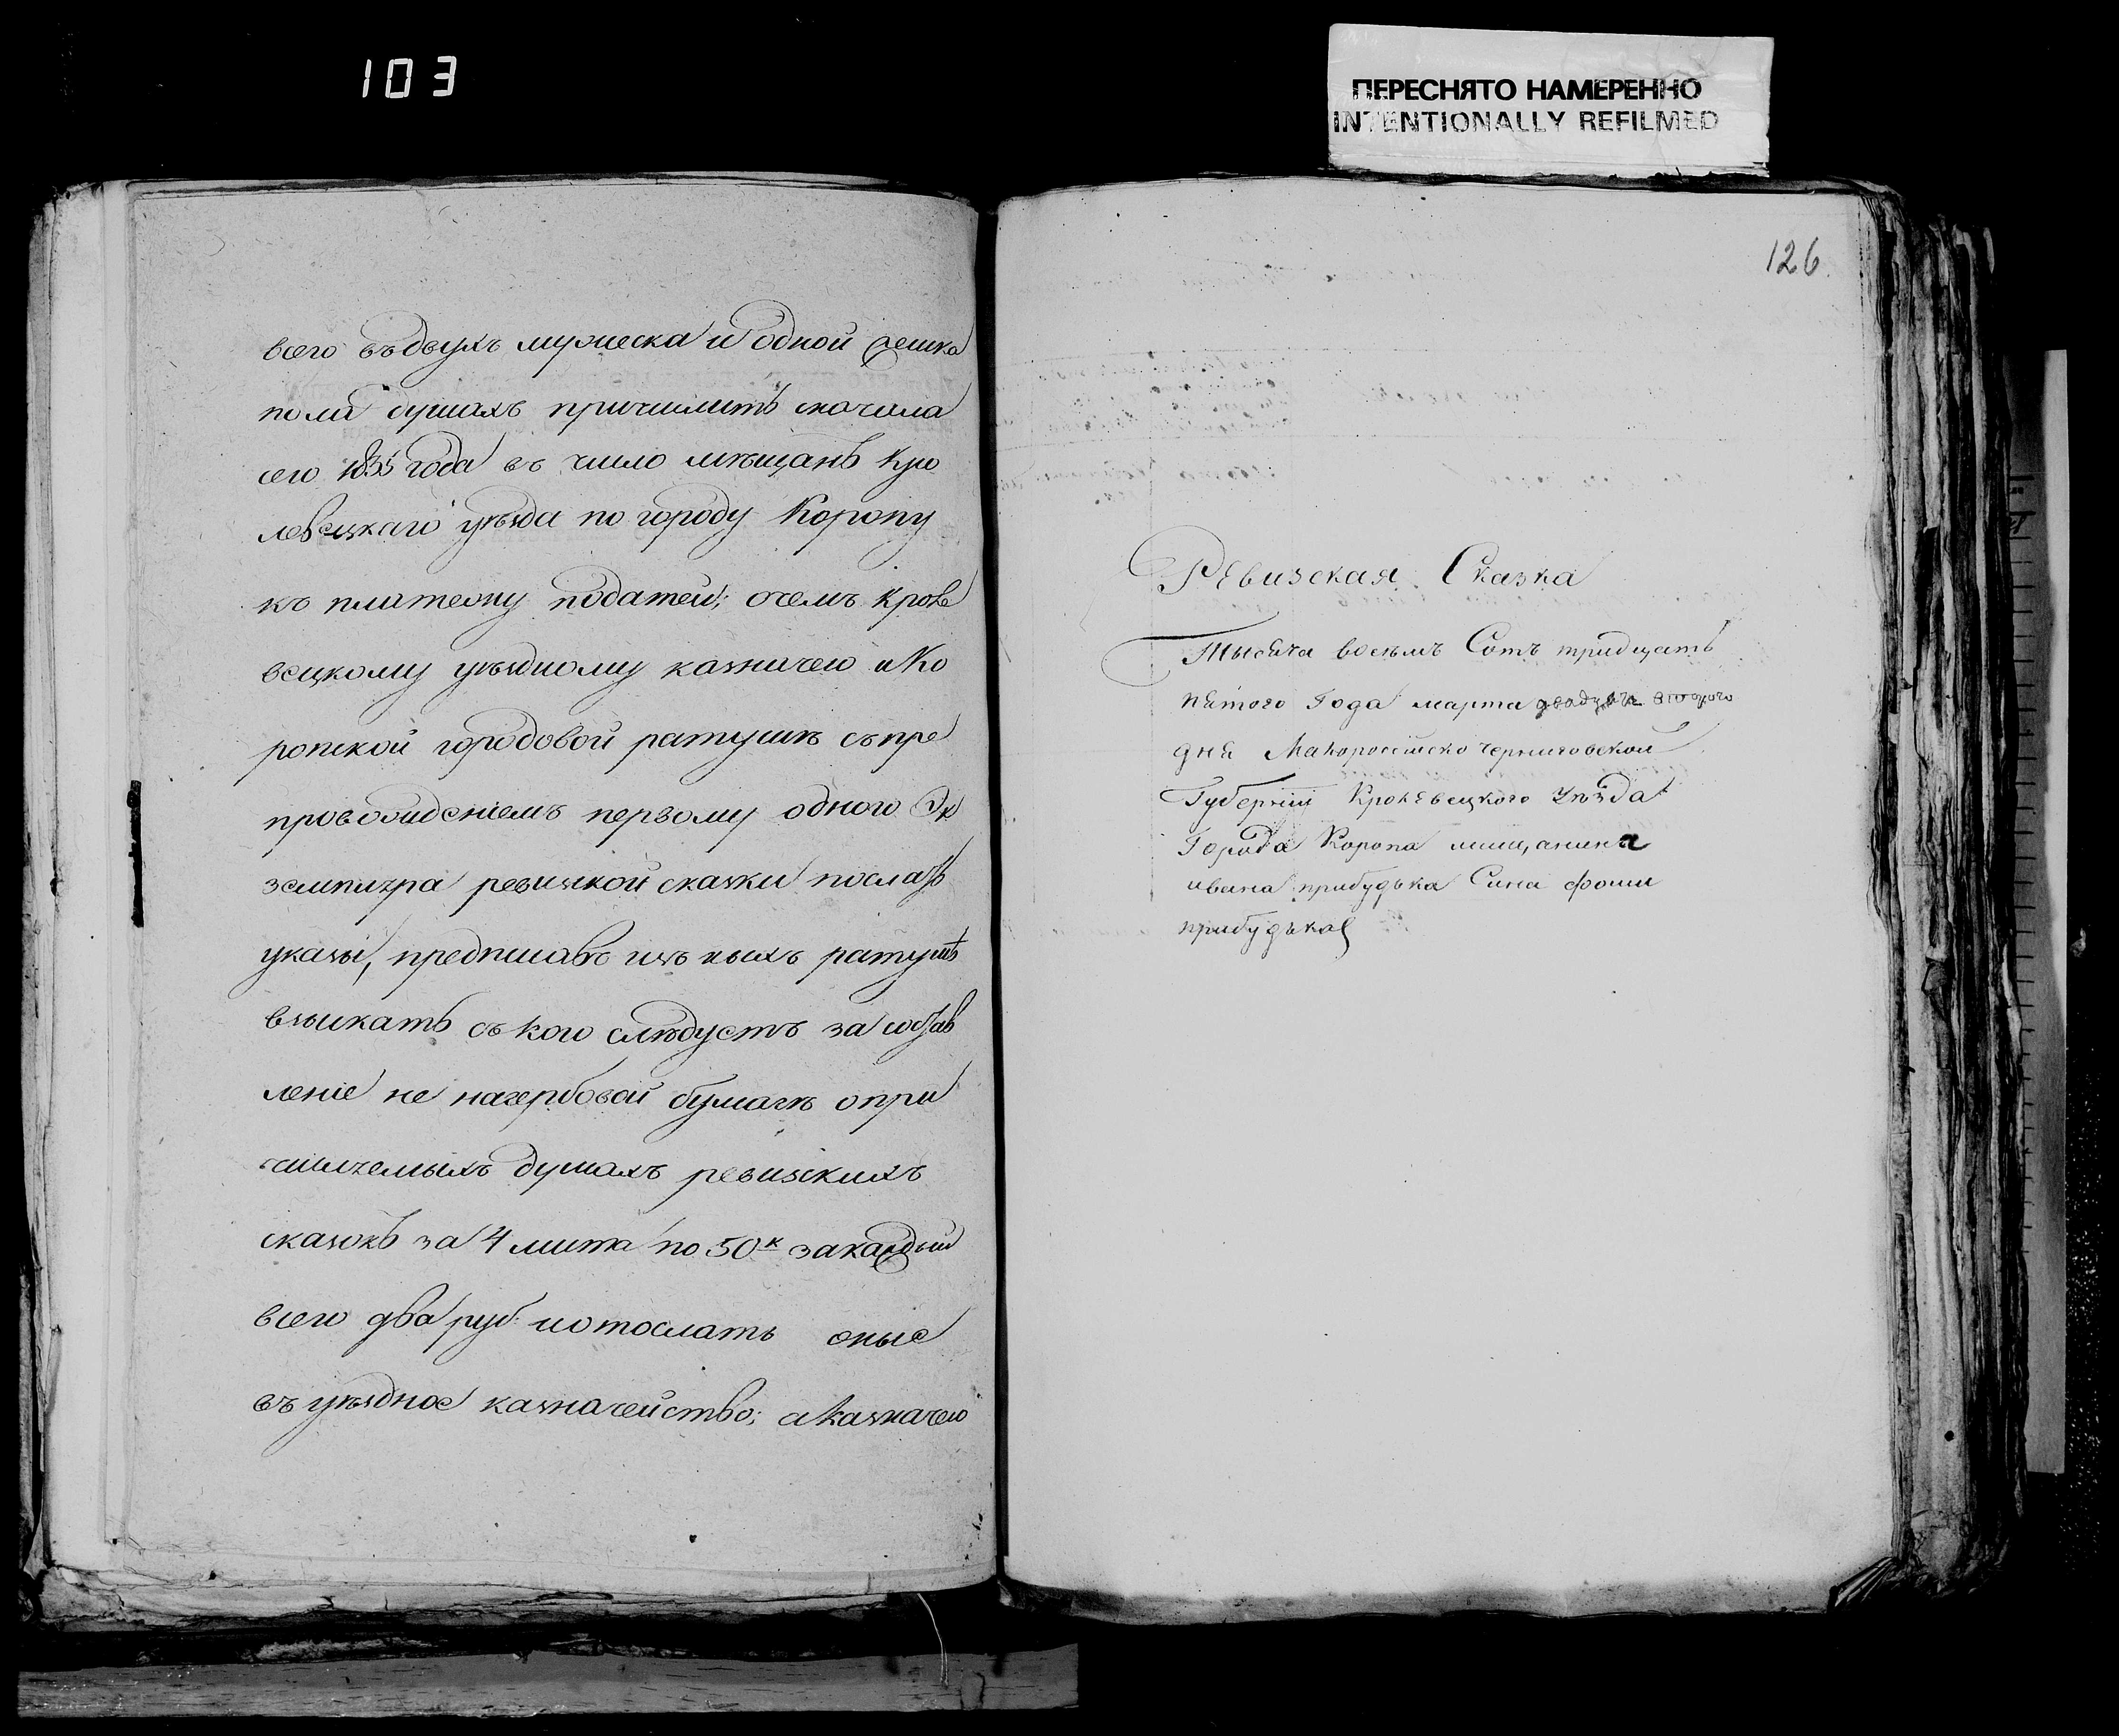 103
ПЕРЕСНЯТО НАМЕРЕННО
INTENTIONALLY REFILMED
126.
всего въ двухъ мужеска и одной женска
пола душахъ причислить сначала
сего 1835 года въ число мѣщанъ Кро
левецкаго уѣзда по городу Коропу
къ платежу податей; о чемъ Кроле
вецкому уѣздному казначею и Ко
ропской городовой ратушѣ съ пре
провождениемъ первому одного Эк
земпляра ревизской сказки послать
указы, предписавъ изъ ныхъ ратушѣ
взыскать съ кого слѣдуетъ за состав
леніе не на гербовой бумагѣ о при
числяемыхъ душахъ ревизскихъ
сказокъ за 4 листа по 50 к за каждый
всего два руб: и отослать оные
въ уѣздное казначейство; а казначею
Ревизская Сказка
Тысяча восемъ Сотъ тридцать
пятого Года марта двадцать второго
дня Малороссійско Черниговской
Губерніи Кролевецкого Уѣзда
Города Коропа мищанина
ивана прибудька Сина фоми
прибудька